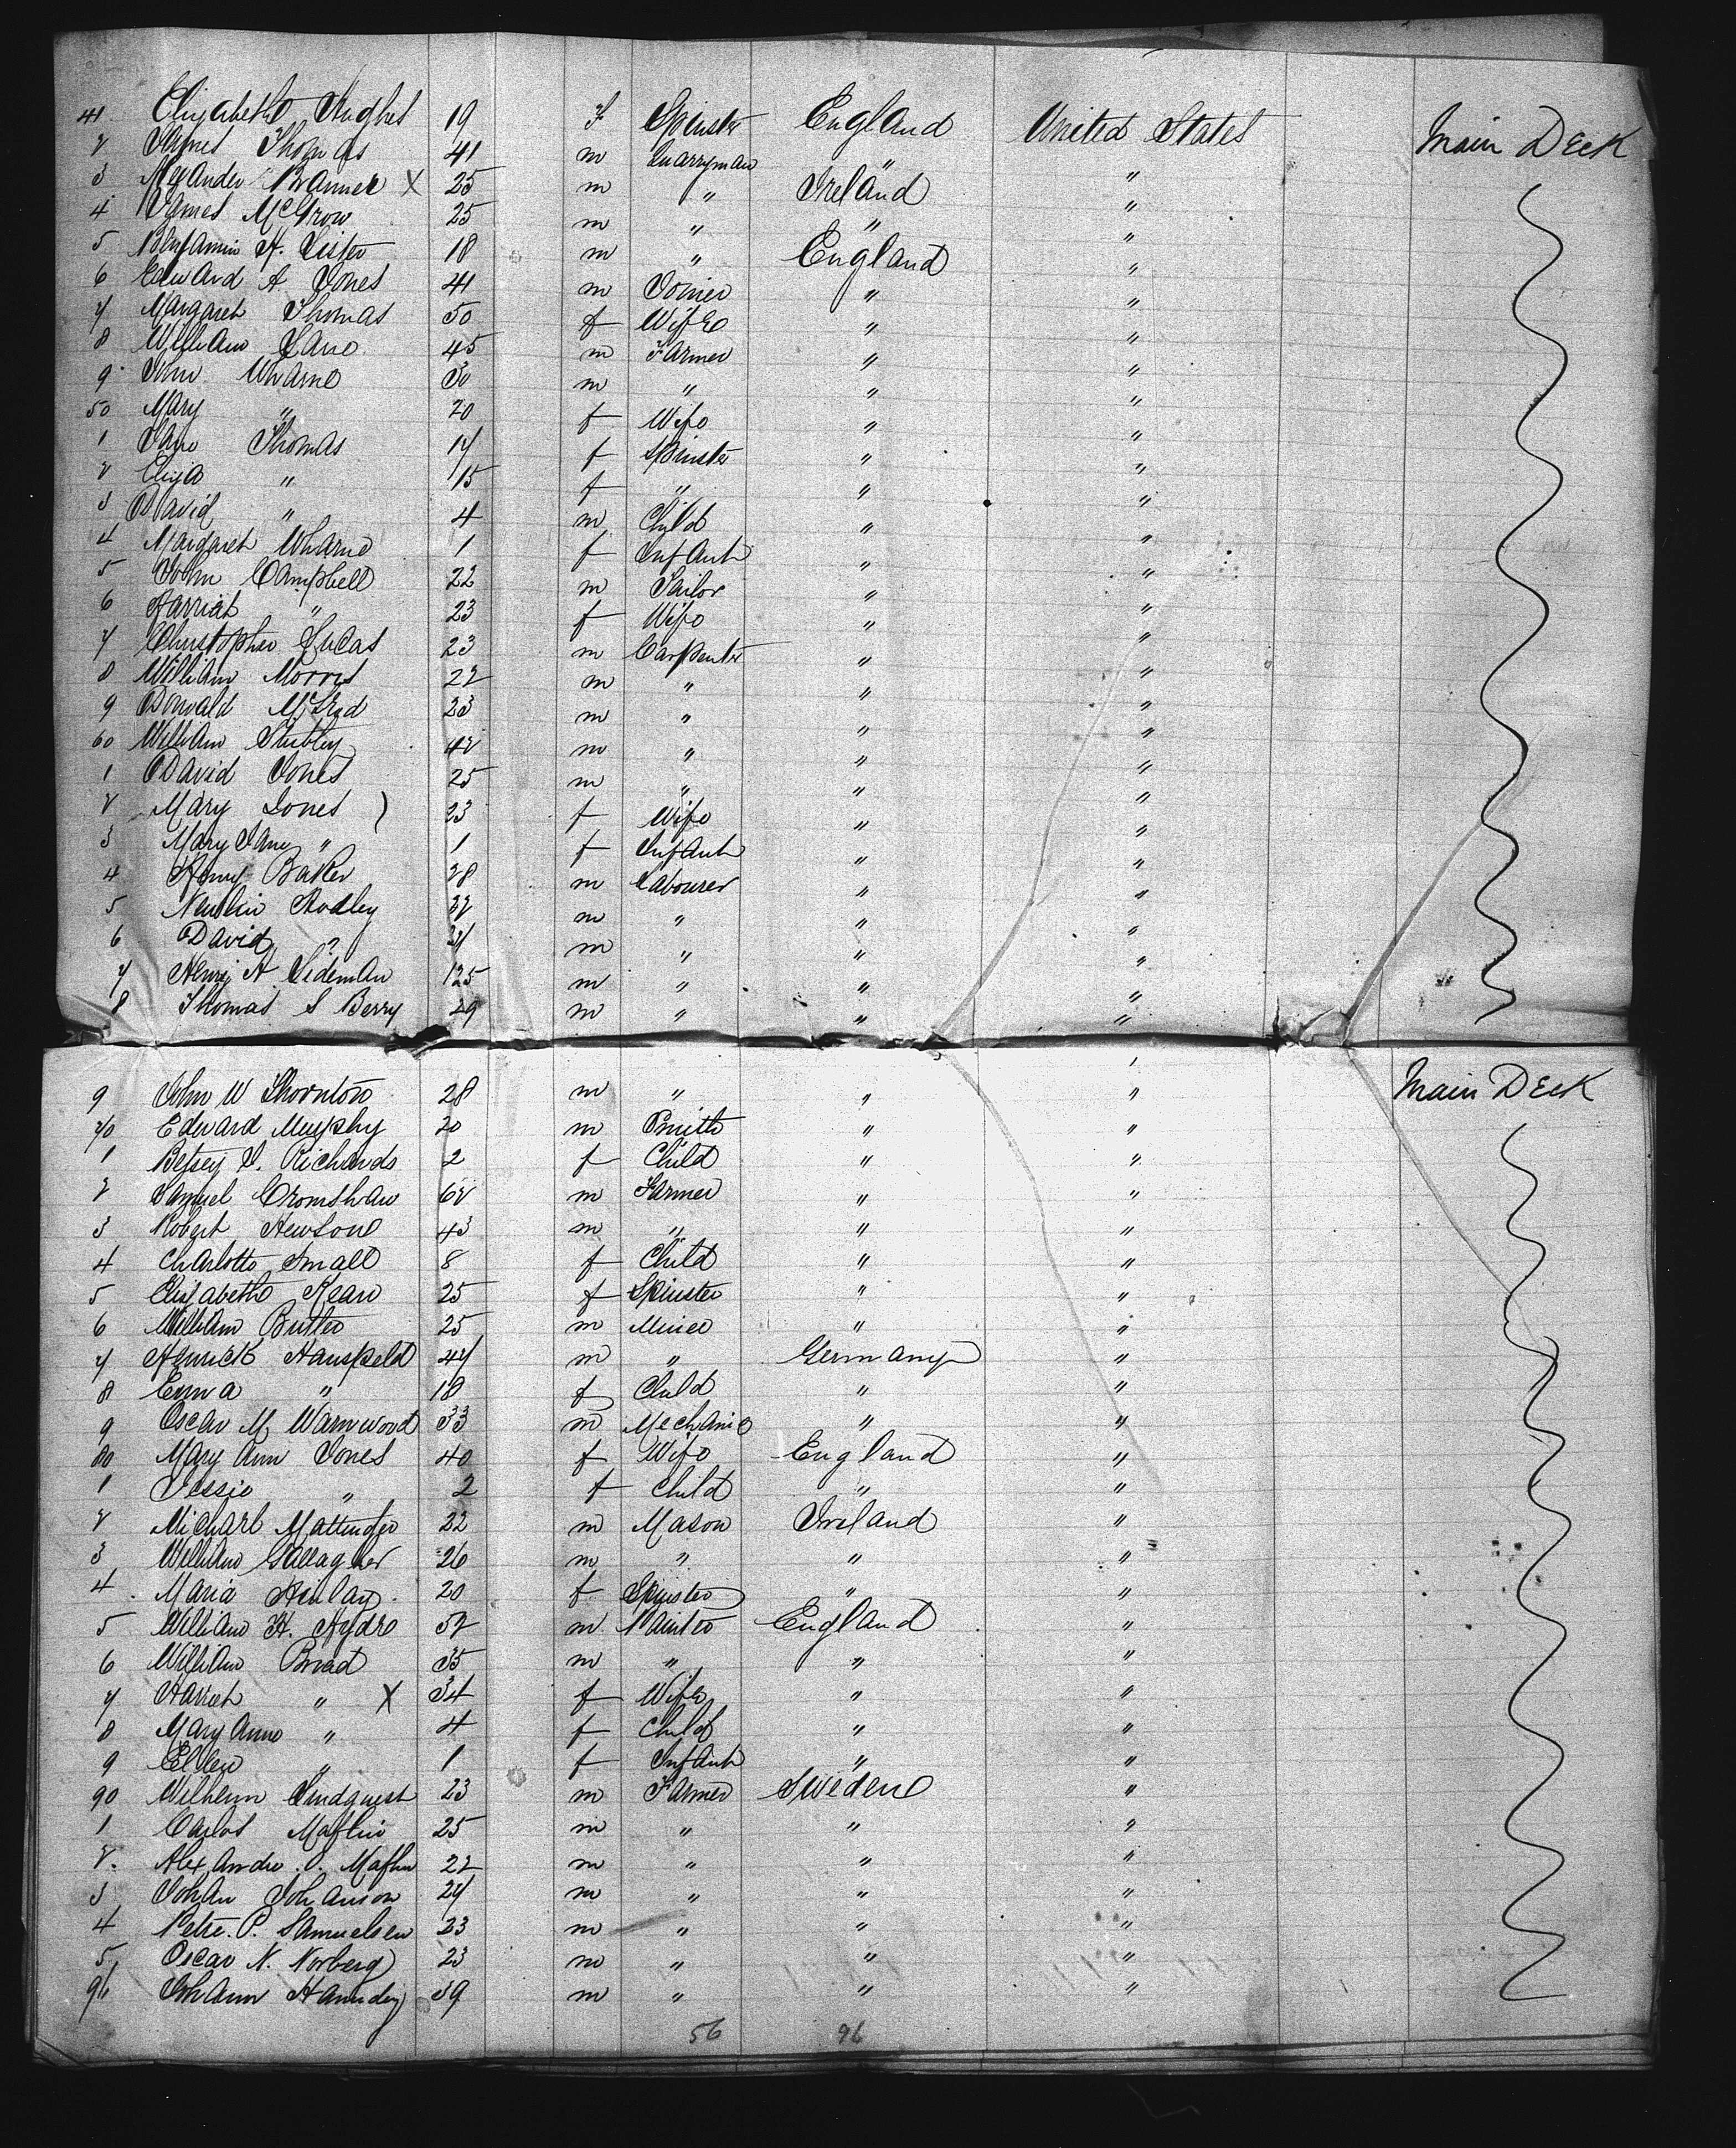 41 Elizabeth Hughes 19 F Spinster England United States Main Deck
2 James Thomas 41 m Quarryman " "
3 Alexander X 25 m " Ireland "
4 James McGrow 25 m " " "
5 Benjamin H. Lister 18 m " England "
6 Edward A Jones 41 m Joiner " "
7 Margaret Thomas 50 f Wife " "
8 William Lane 45 m Farmer " "
9 John Wharne 30 m " " "
50 Mary " 20 f Wife " "
1 Jane Thomas 17 f Spinster " "
2 Eliza " 15 f " " "
3 David " 4 m Child " "
4 Margaret Wharne 1 f Infant " "
5 John Campbell 22 m Sailor " "
6 Harriet " 23 f Wife " "
7 Christopher Lucas 23 m Carpenter " "
8 William Morris 22 m " " "
9 Donald 23 m " " "
60 William Stubley 42 m " " "
1 David Jones 25 m " " "
2 Mary Jones ) 23 f Wife " "
3 Mary Jane " 1 f Infant " "
4 Henry Baker 28 m Labourer " "
5 Hodley m " " "
6 David " m " " "
7 Henry A Sideman 25 m " " "
8 Thomas S Berry 29 m " " "
9 John W Thornton 28 m " " " Main Deck
70 Edward Murphy 20 m Smith " "
1 Betsey J. Richards 2 f Child " "
2 Samuel Cromshaw 62 m Farmer " "
3 Robert Hewson 43 m " " "
4 Charlotte Small 8 f Child " "
5 Elizabeth Kean 25 f Spinster " "
6 William Butler 25 m Miner " "
7 Henrick Hansfeld 47 m " Germany "
8 Emma " 18 f Child " "
9 Oscar M Warnwood 33 m Mechanic " "
80 Mary Ann Jones 40 f Wife England "
1 Jessie " 2 f Child " "
2 Michael 22 m Mason Ireland "
3 William Gallagher 26 m " " "
4 Maria Finlay 20 f Spinster " "
5 William H. Hydre 52 m Painter England "
6 William Broad 35 m " " "
7 Harriet " X 34 f Wife " "
8 Mary Anne " 4 f Child " "
9 Ellen " 1 f Infant " "
90 Wilhelm Lindquest 23 m Farmer Sweden "
1 Carlos Maflin 25 m " " "
2. Alexandre O. Maflin 22 m " " "
3 Johan Johanson 27 m " " "
4 Petre. P. Samuelsen 23 m " " "
5 Oscar N. Norberg 23 m " " "
96 Johann 39 m " " "
56 96